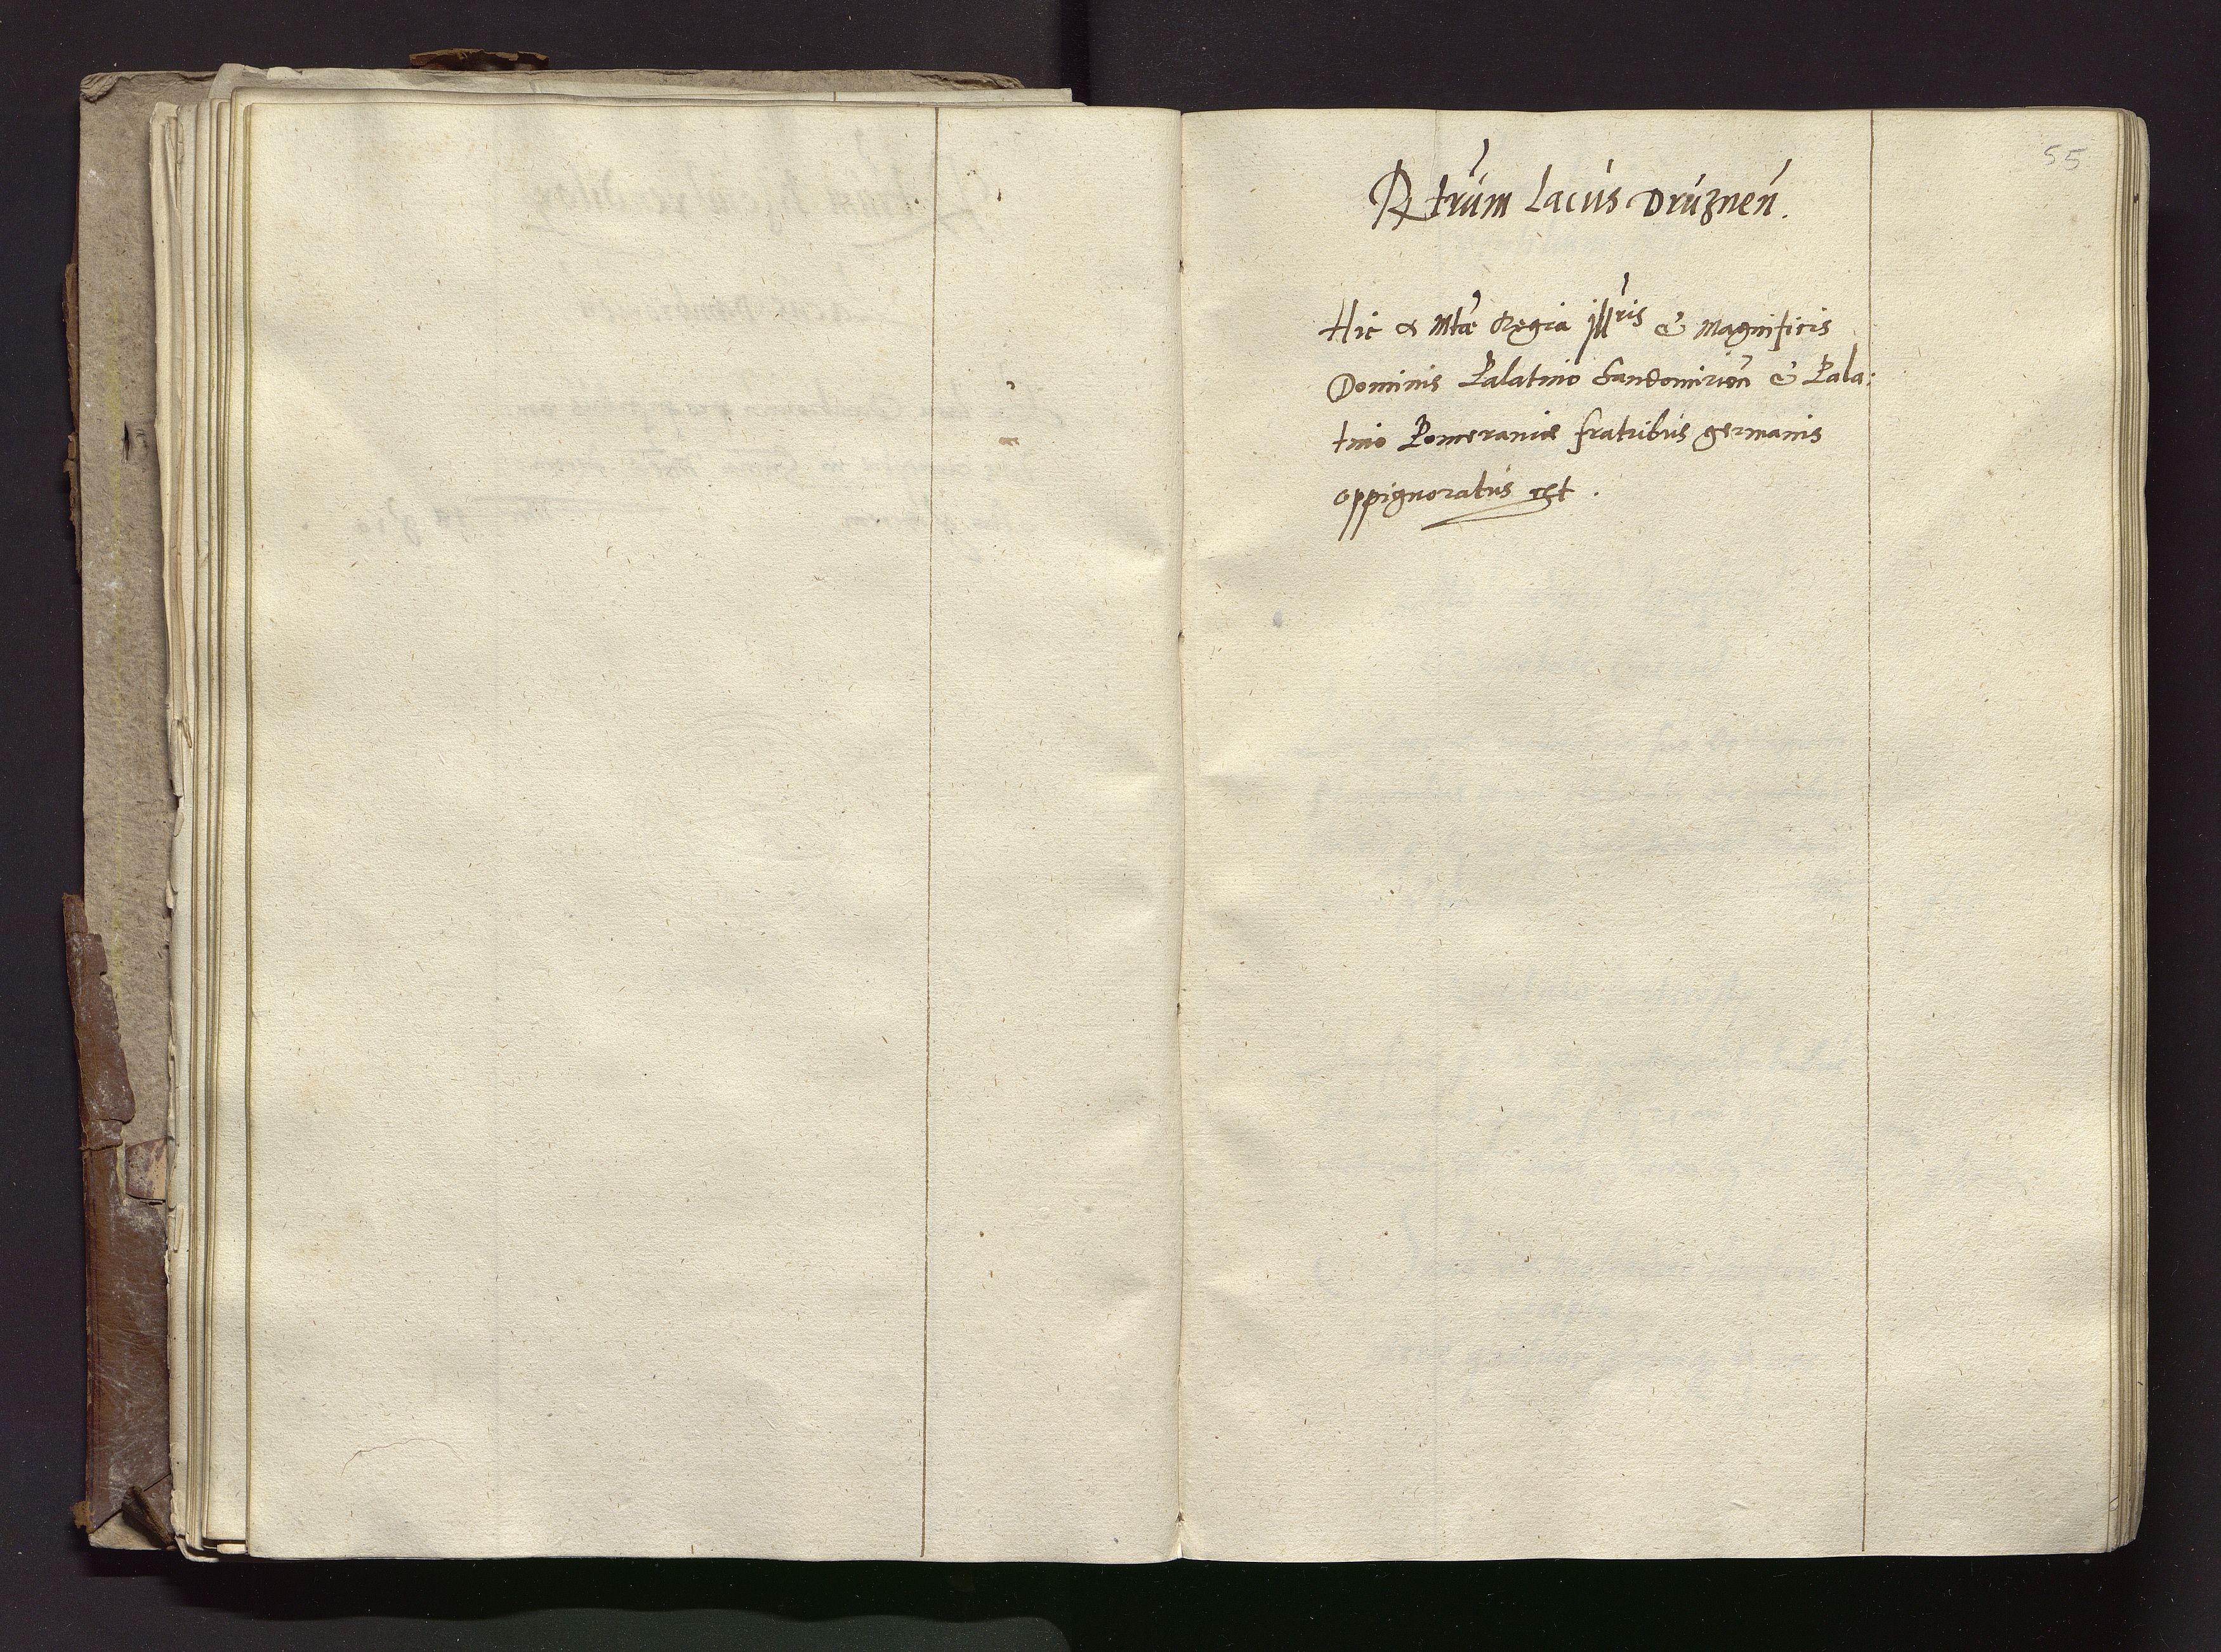 55
Rtrum Lacus Druznen.
Hic a Mtæ Regia illris & Magnificis
Dominis Palatino Sandomirien & Pala:
tino Pomeraniæ fratribus germanis
oppignoratus est.